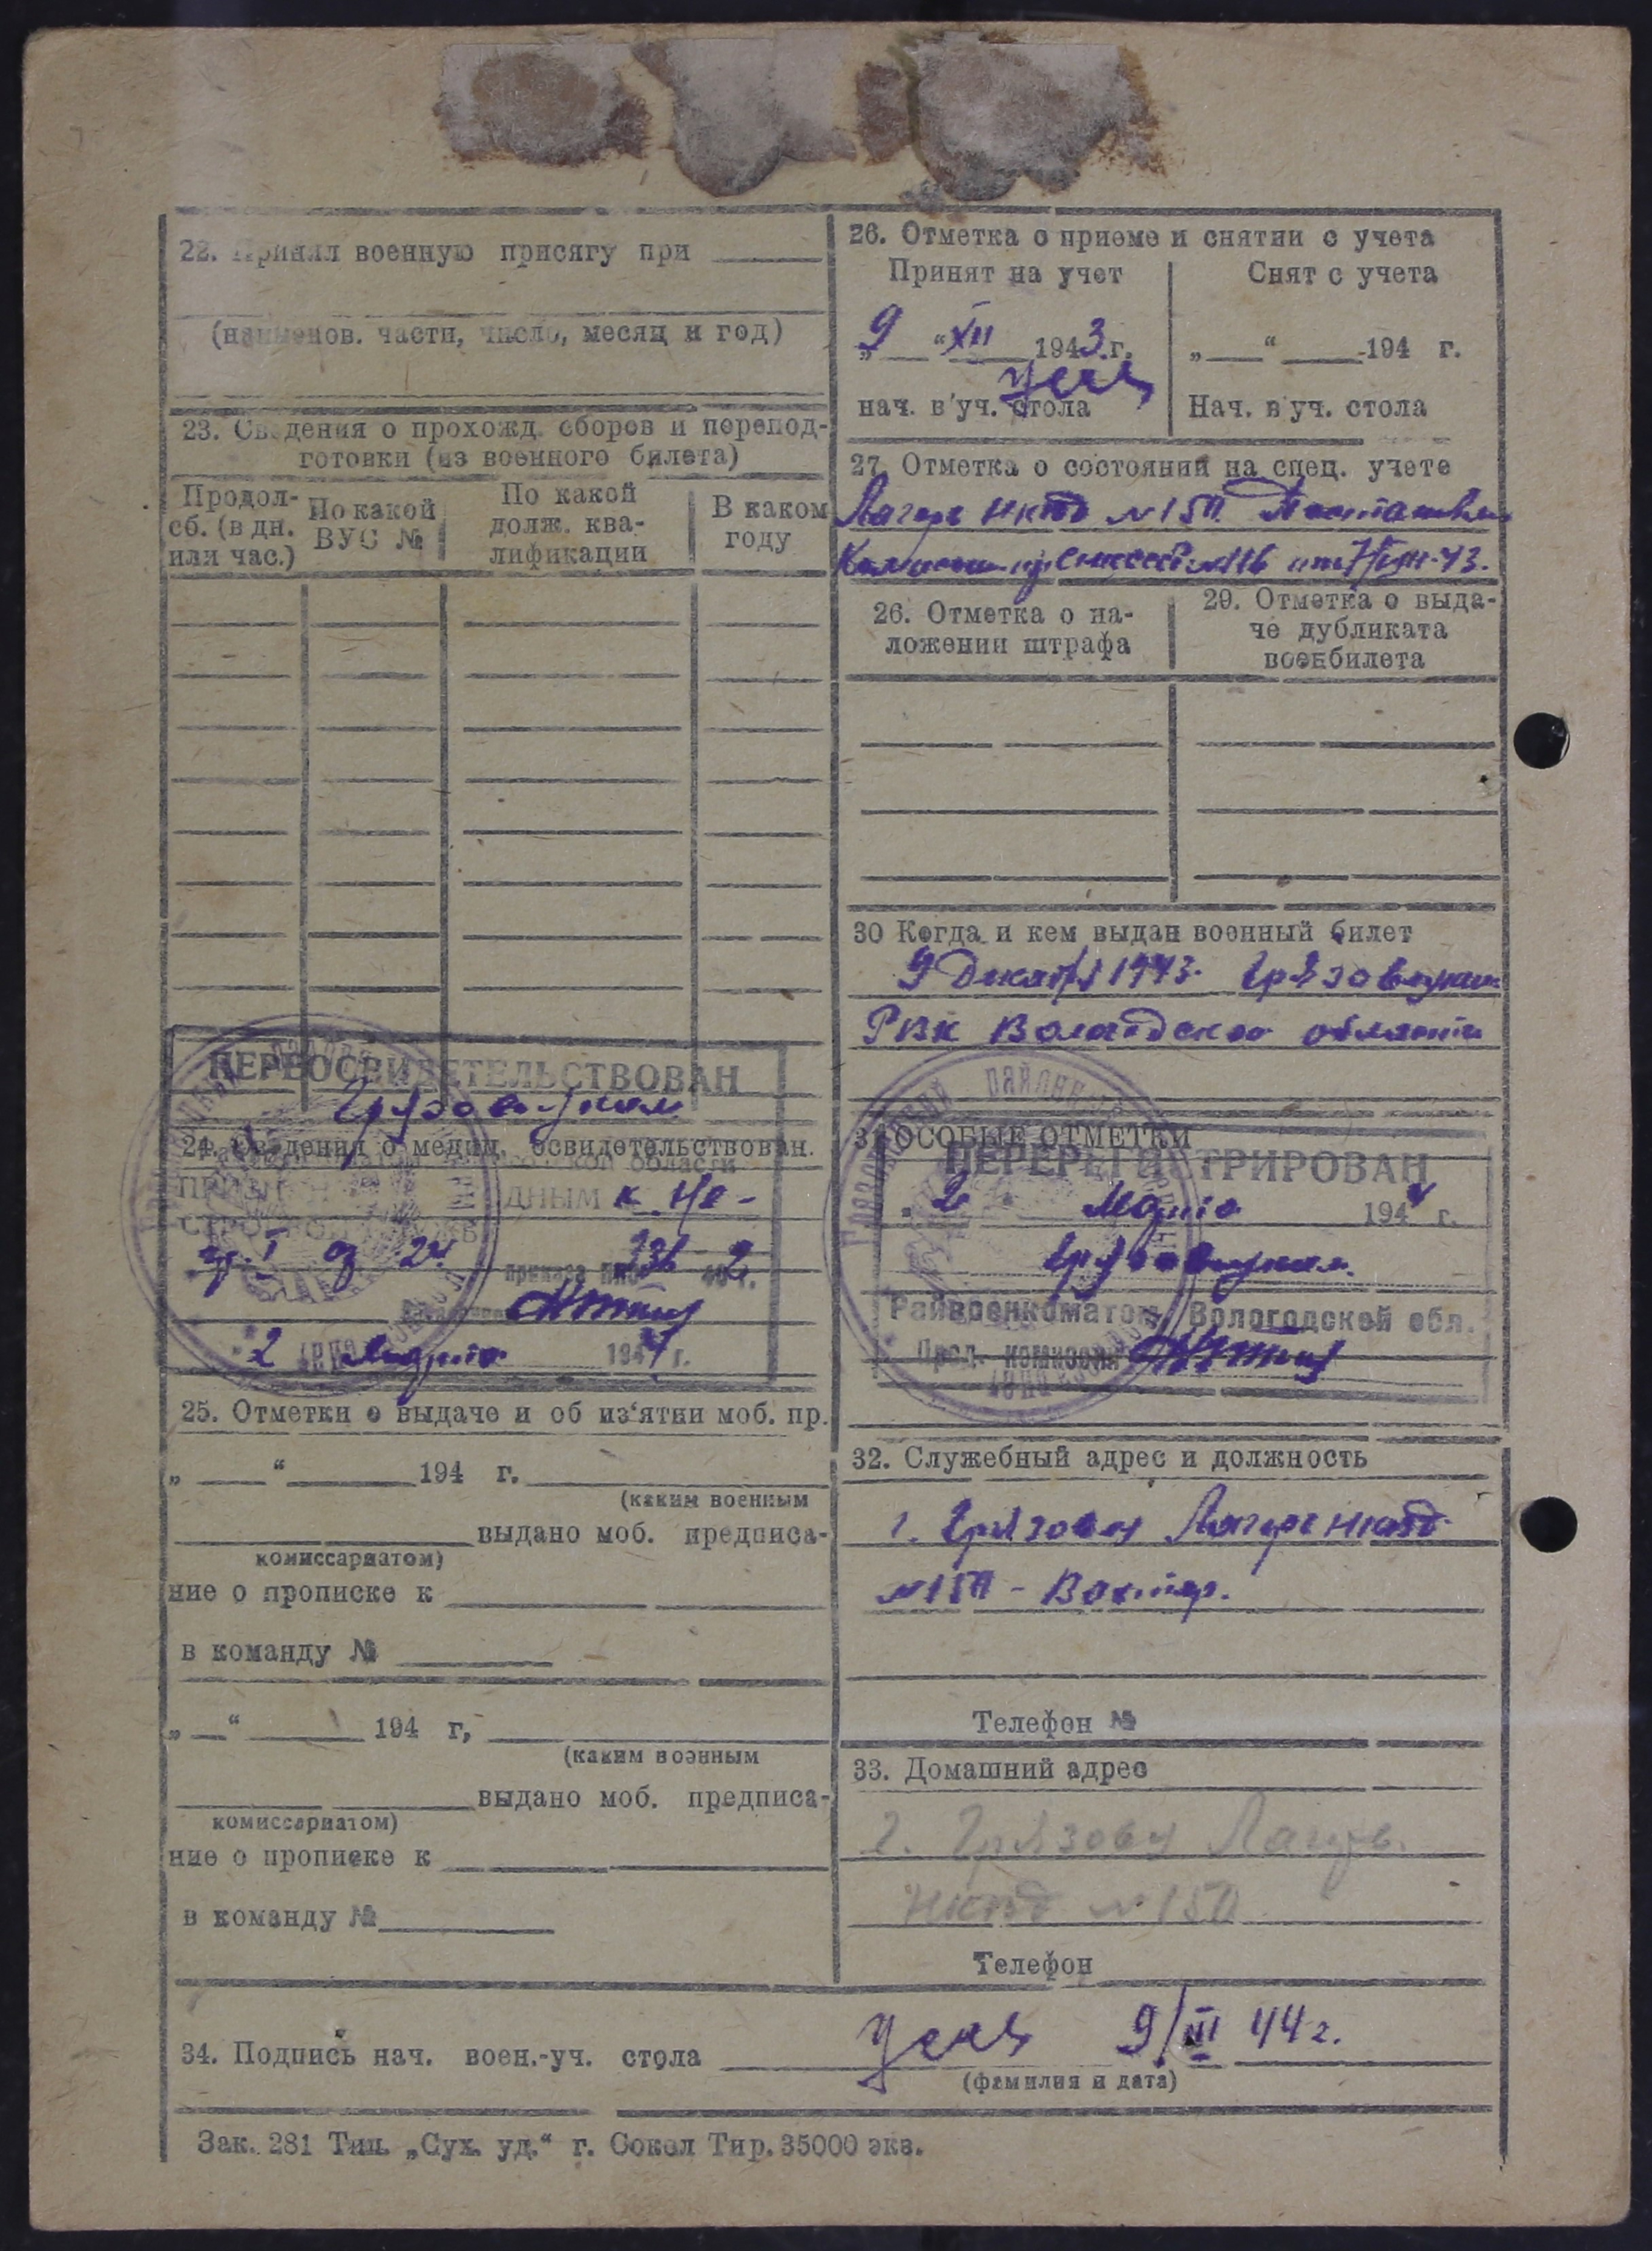 22. Принял военную присягу при
(наименов. части, число, месяц и год)
23. Сведения о прохожд. сборов и перепод-
готовки (из военного билета)
Продол-
сб. (в дн.
или час.)
По какой
ВУС №
По какой
долж. ква-
лификации
В каком
году
ПЕРЕОСВИДЕТЕЛЬСТВОВАН
Грязовецким
24. Сведения о медиц. освидетельствован.
области
ДНЫМ к н/с-
гр. I
приказа НКО 336 42 г.
2 Марта 1944 г.
25. Отметки о выдаче и об из‘ятии моб. пр.
„ “ 194 г.
(каким военным
выдано моб. предписа-
комиссариатом)
ние о прописке к
в команду №
„ “ 194 г,
(каким военным
выдано моб. предписа-
комиссариатом)
ние о прописке к
в команду №
26. Отметка о приеме и снятии с учета
Принят на учет
„9“ XII 1943.г.
нач. в'уч. стола
Снят с учета
„ “ 194 г.
Нач. в уч. стола
27. Отметка о состоянии на спец. учете
Лагерь НКВД №150
от 7/VIII-43.
26. Отметка о на-
ложении штрафа
29. Отметка о выда-
че дубликата
военбилета
30 Когда и кем выдан военный билет
9 Декабря 1943. Грязовецким
РВК Вологодской области
31 ОСОБЫЕ ОТМЕТКИ
ПЕРЕРЕГИСТРИРОВАН
2 Марта 1944 г.
Грязовецким
Райвоенкоматом, Вологодской обл.
Пред. комиссии
32. Служебный адрес и должность
г. Грязовец Лагерь НКВД
№150 - Вахтер.
Телефон №
33. Домашний адрес
г. Грязовец Лагерь
НКВД №150
Телефон
34. Подпись нач. воен.-уч. стола 9/III 44 г.
(фамилия и дата)
Зак. 281 Тип. „Сух. уд.“ г. Сокол Тир. 35000 экз.